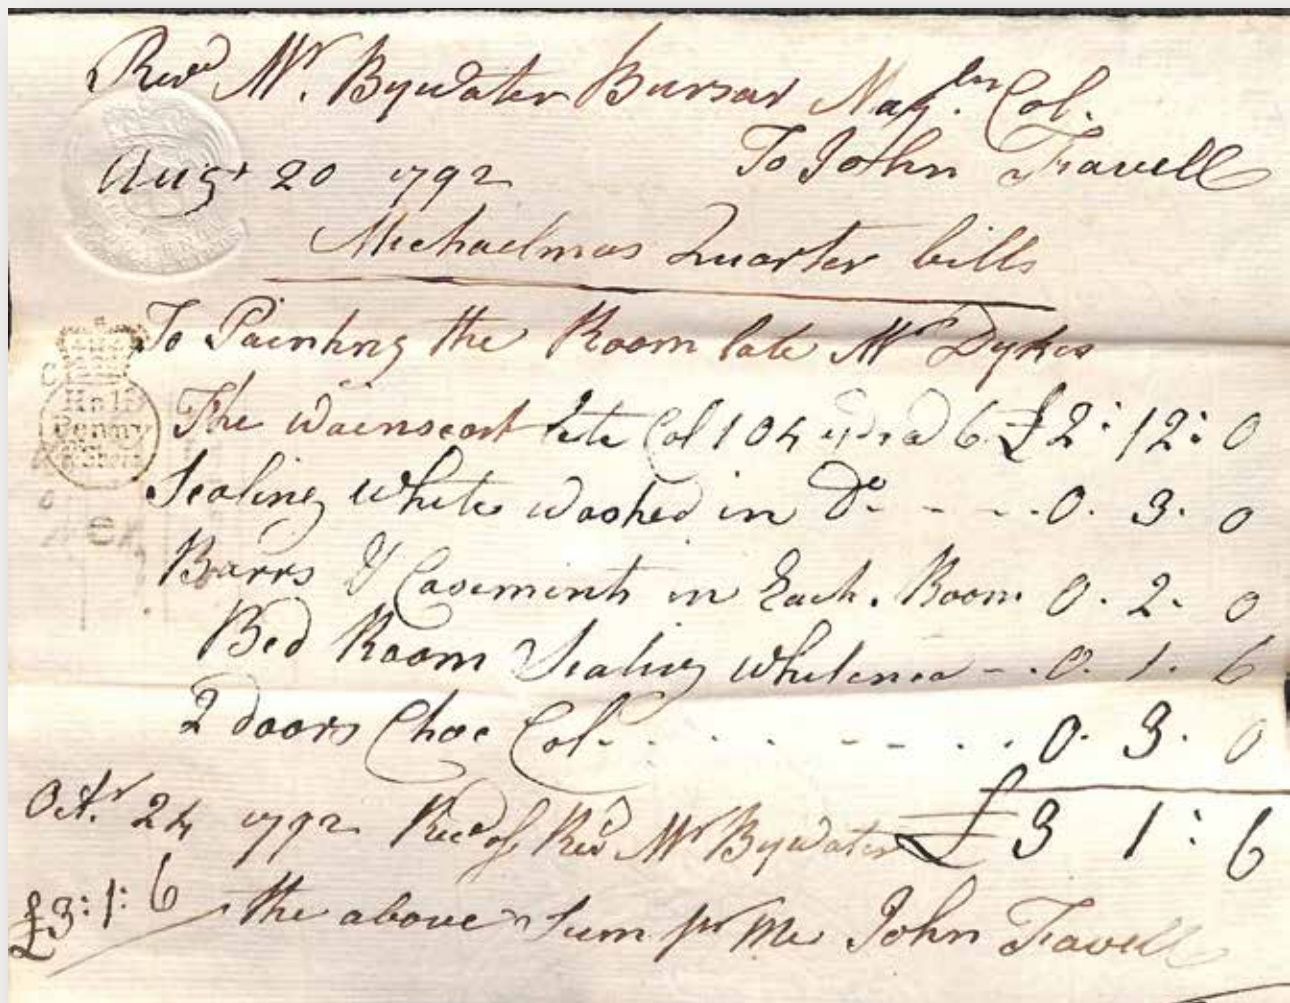 Revd Mr. Bywater Bursar Mag.len Col.
To John Travell
Augt 20 1792
Michaelmas Quarter bills
To Painting the Room late Mr Dykes
The Wainscort Col 104 yds a 6 £2: 12: 0
Sealing White Washed in Do. - - - . 0. 3. 0
Barrs & Casements in Each. Room 0. 2. 0
Bed Room Sealing Whitened - . 0. 1. 6
2 doors Choc Col. . . . . - - . . . 0. 3. 0
£3 1: 6
Octr. 24 1792 Recd of Revd Mr Bywater
£3: 1: 6 the above Sum pr Me John Travell
Half
Penny